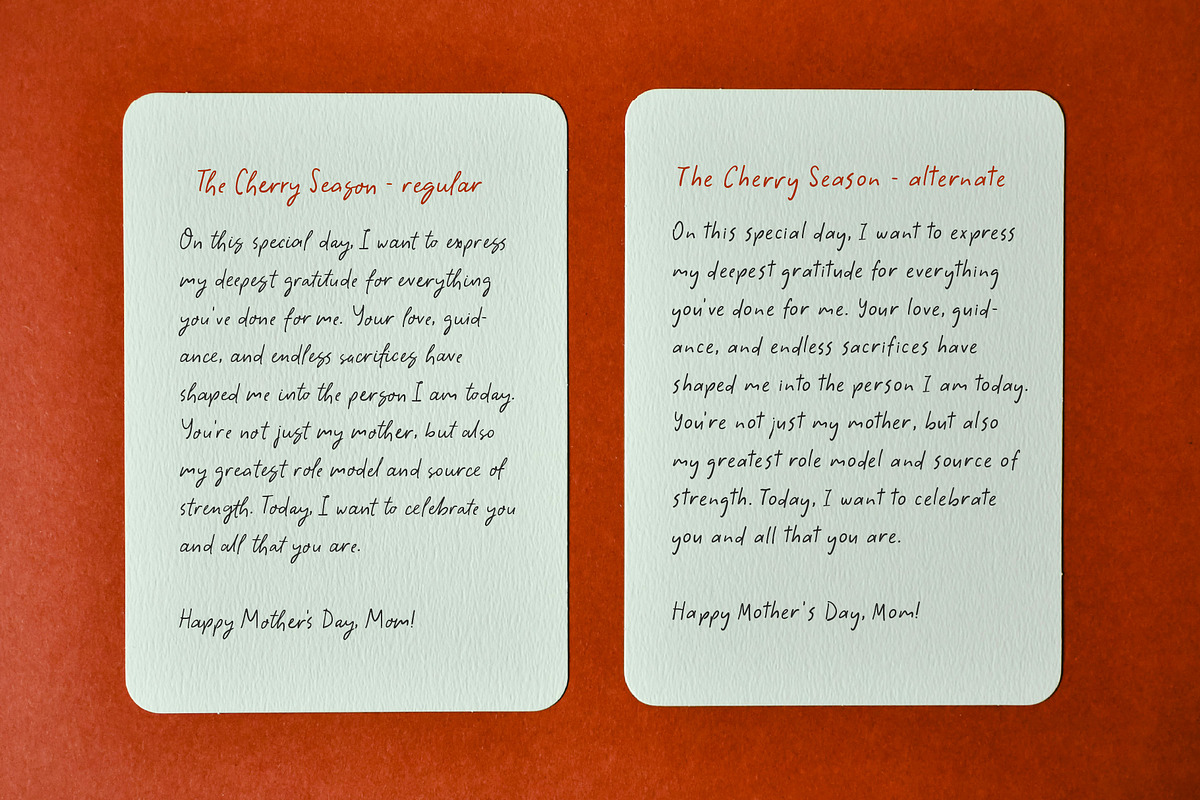 The Cherry Season - regular
On this special day, I want to express
my deepest gratitude for everything
you've done for me. Your love, guid-
ance, and endless sacrifices have
shaped me into the person I am today.
You're not just my mother, but also
my greatest role model and source of
strength. Today, I want to celebrate you
and all that you are.
Happy Mother's Day, Mom!
The Cherry Season - alternate
On this special day, I want to express
my deepest gratitude for everything
you've done for me. Your love, guid-
ance, and endless sacrifices have
shaped me into the person I am today.
You're not just my mother, but also
my greatest role model and source of
strength. Today, I want to celebrate
you and all that you are.
Happy Mother's Day, Mom!